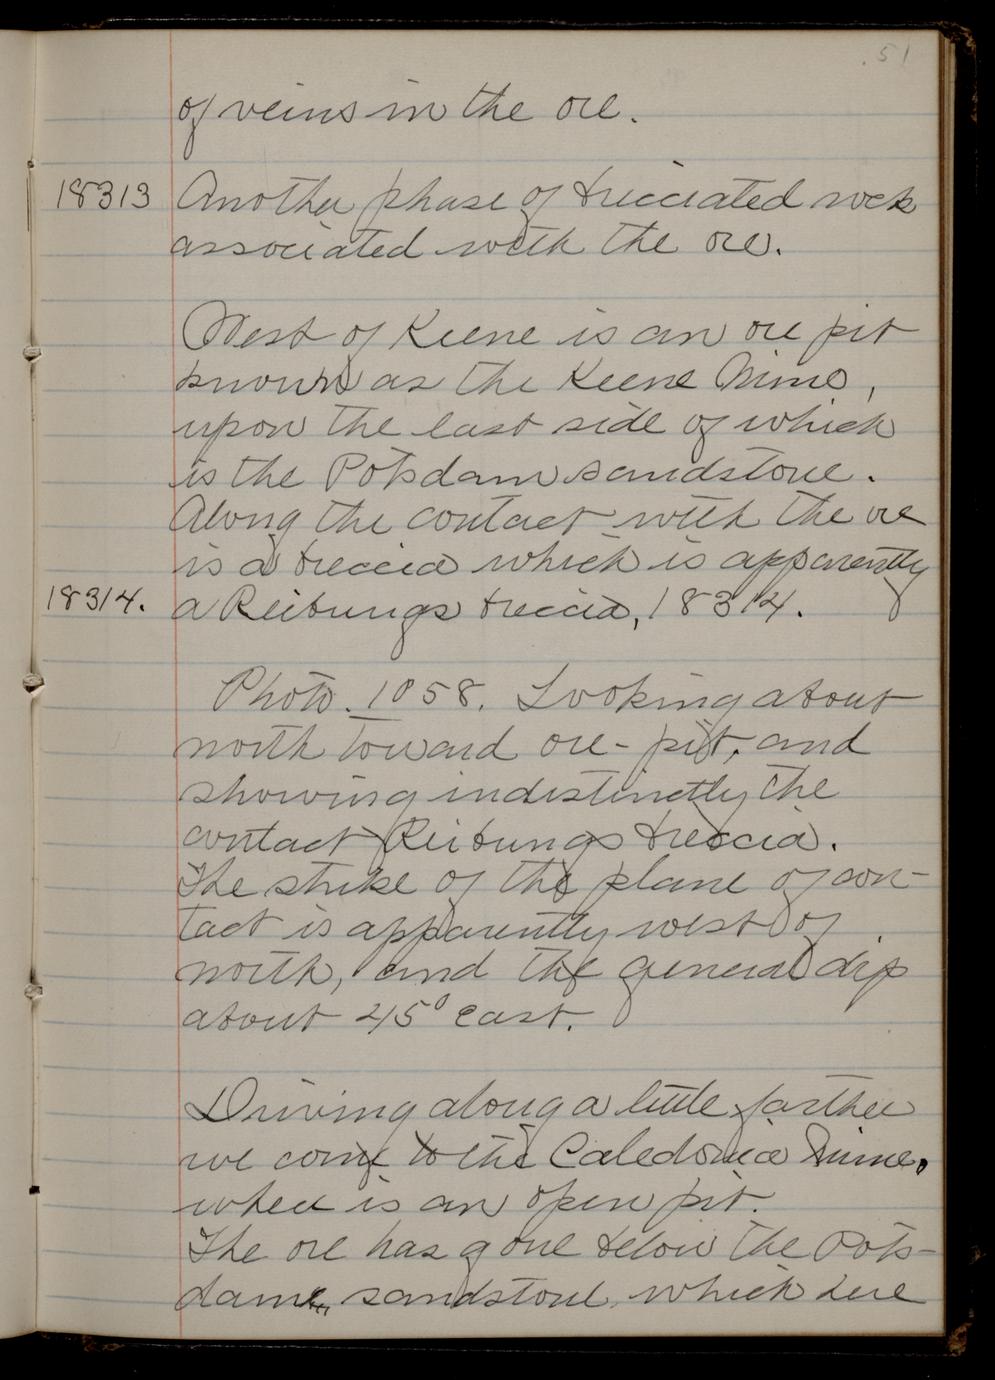 51
of veins in the ore.
18313 Another phase of brecciated rock
associated with the ore.
West of Keene is an ore pit
known as the Keene Mine,
upon the east side of which
is the Potsdam sandstone.
Along the contact with the ore
is a breccia which is apparently
18314. a Reibungs breccia, 18314.
Photo. 1058. Looking about
north toward ore-pit, and
showing indistinctly the
contact Reibungs breccia.
The strike of the plane of con-
tact is apparently west of
north, and the general dip
about 45° east.
Driving along a little farther
we come to the Caledonia Mine,
where is an open pit.
The ore has gone below the Pots-
dam sandstone, which here